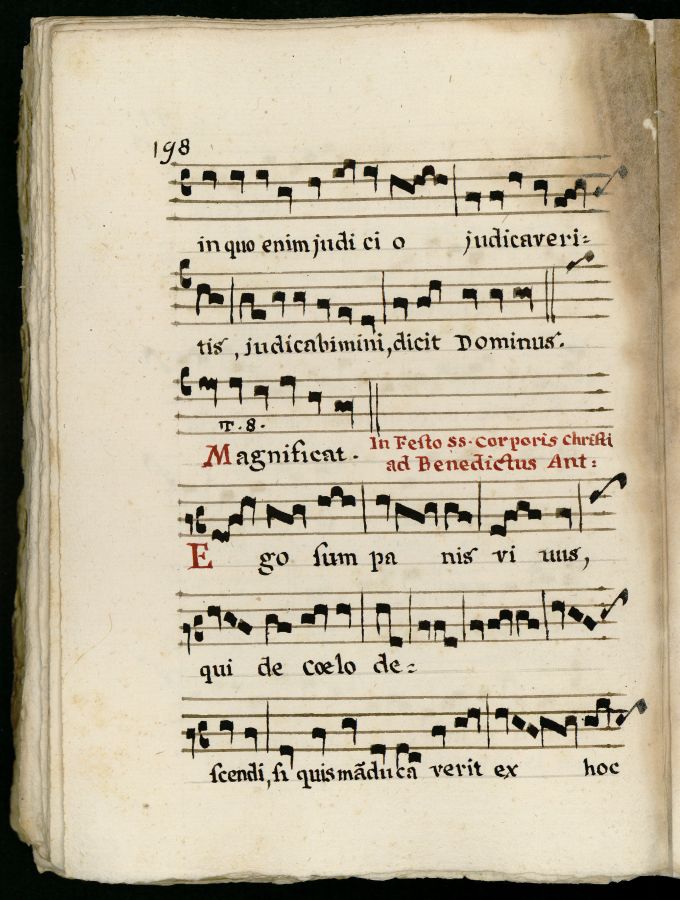 198
in quo enim judi ci o judicaveri=
tis, judicabimini, dicit Dominus.
T. 8.
Magnificat. In Festo SS. Corporis Christi
ad Benedictus Ant:
Ego sum pa nis vi uus,
qui de cœlo de=
scendi, si quis mãdu ca verit ex hoc